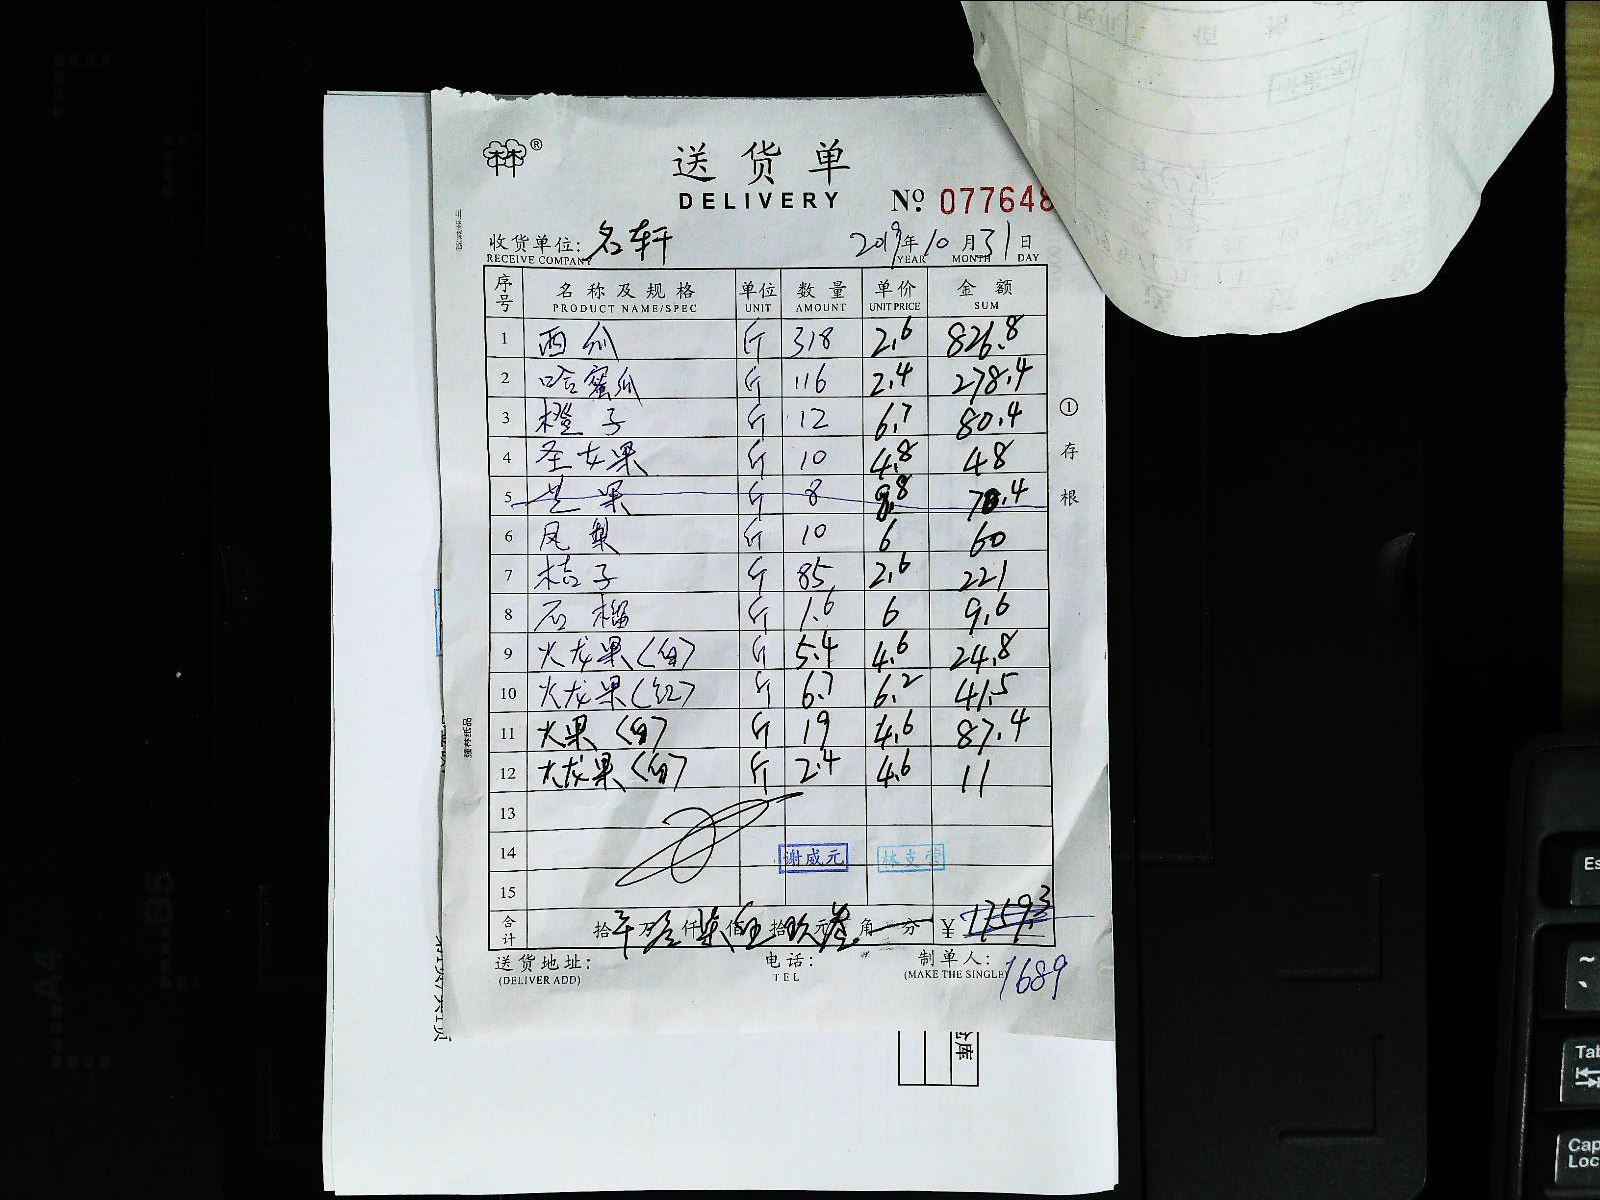 林林®
送货单
DELIVERY
№ 077648
收货单位: 名轩 2019年10月31日
RECEIVE COMPANY YEAR MONTH DAY
序号 名称及规格 单位 数量 单价 金额
PRODUCT NAME/SPEC UNIT AMOUNT UNIT PRICE SUM
1 西瓜 斤 318 2.6 826.8
2 哈蜜瓜 斤 116 2.4 278.4
3 橙子 斤 12 6.7 80.4
4 圣女果 斤 10 4.8 48
5 芒果 斤 8 8.8 70.4
6 凤梨 斤 10 6 60
7 桔子 斤 85 2.6 221
8 石榴 斤 1.6 6 9.6
9 火龙果(白) 斤 5.4 4.6 24.8
10 火龙果(红) 斤 6.7 6.2 41.5
11 火果(白) 斤 19 4.6 87.4
12 火龙果(白) 斤 2.4 4.6 11
13
14 谢威元
15
合计 拾 万 仟 柒 佰 伍 拾 玖 元 叁 角 分 ¥ 1759.3
送货地址: 电话: 制单人: 1689
(DELIVER ADD) TEL (MAKE THE SINGLE)
①存根
Tab